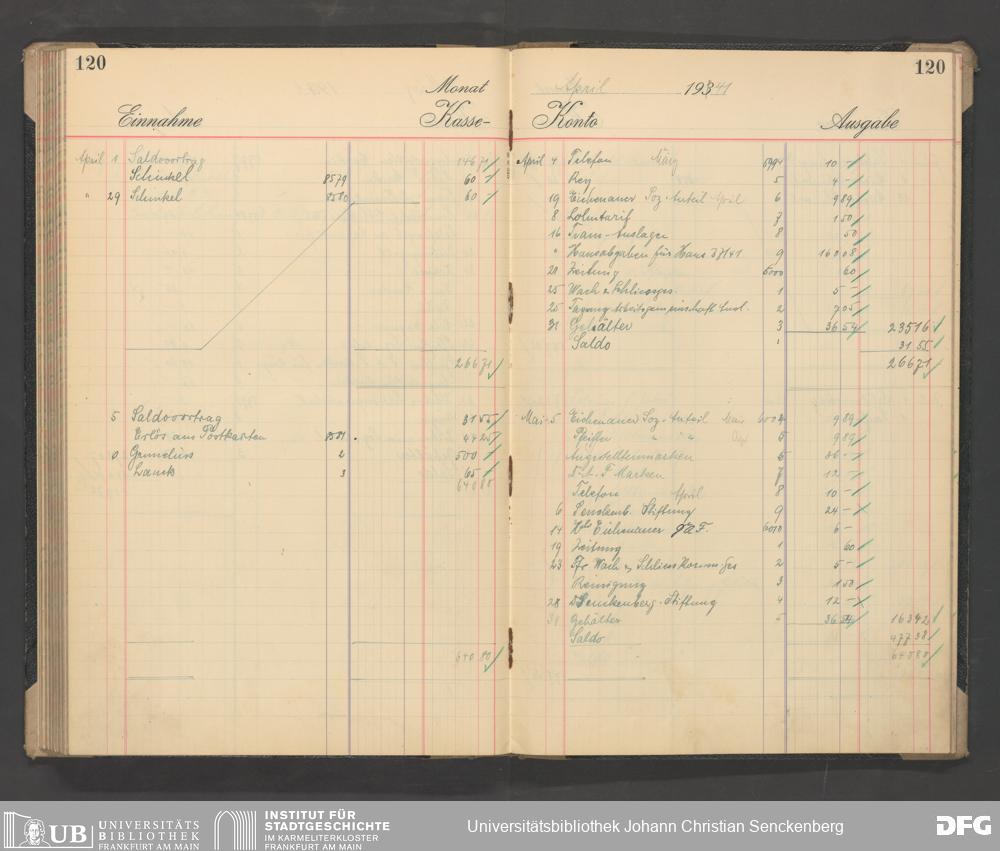 120
Monat
Einnahme Kasse-
April 1 Saldovortrag 146 71
Schinkel 8579 60 -
" 29 Schinkel 8580 60 -
266 71
5 Saldovortrag 31 55
Erlös aus Postkarten 8581 44 25
Grunelius 2 500 -
Lauck 3 65 -
640 80
640 80
120
April 1941
Konto Ausgabe
April 4 Telefon März 5994 10 -
5 4 -
19 Eichenauer Soz. Anteil April 6 9 89
8 Lohntarif 7 1 50
16 Tram-Auslagen 8 50
" Hausabgaben für Haus 9 160 08
20 Zeitung 6000 60
25 Wach & Schliessges. 1 5 -
25 Tagung Arbeitsgemeinschaft 2 7 05
Gehälter 3 36 54 235 16
Saldo 31 55
266 71
Mai 5 Eichenauer Soz. Anteil Mai 6004 9 89
Pfeiffer " " 5 9 89
Angestelltenmarken 6
D.A.F Marken 7 12 -
Telefon April 8 10 -
6 Senckenb. Stiftung 9 24 -
14 Eichenauer 6010 6 -
19 Zeitung 1 60
23 Wach & Schliess 2 5 -
Reinigung 3 1 50
28 Senckenberg. Stiftung 4 12 -
31 Gehälter 5 36 54 163 42
Saldo 477 38
640 80
UB UNIVERSITÄTS
BIBLIOTHEK
FRANKFURT AM MAIN
INSTITUT FÜR
STADTGESCHICHTE
IM KARMELITERKLOSTER
FRANKFURT AM MAIN
Universitätsbibliothek Johann Christian Senckenberg
DFG